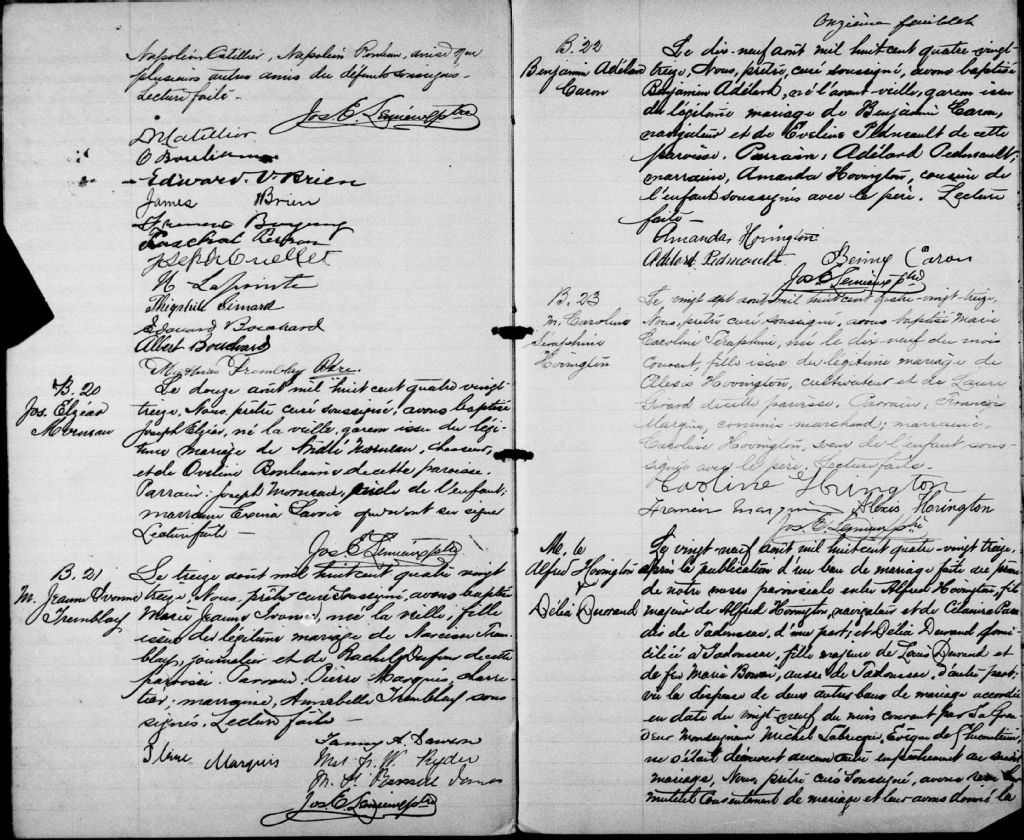 Napoléon Catillier, Napoléon
plusieurs autres amis du défunt soussignés
Lecture faite –
Jos E. Lemieux ptre
Edward O'Brien
James O'Brien
Paschal Perron
Joseph Ouellet
N Lapointe
Théophile Simard
Edouard Bouchard
Albert Bouchard
Tremblay
B. 20
Jos. Elzéar
Morneau
Le douze août mil huit cent quatre vingt-
treize, Nous, prêtre curé soussigné, avons baptisé
Joseph Elzéar, né la veille, garçon issu du légi-
time mariage de Morneau, chasseur,
et de Oveline de cette paroisse.
Parrain: Joseph Morneau, oncle de l'enfant;
marraine Savoie qui n'ont su signer
Lecture faite –
Jos E Lemieux ptre
B. 21
M. Jeanne Ivonne
Tremblay
Le treize août mil huit cent quatre vingt
treize, Nous, prêtre curé soussigné, avons baptisé
Marie Jeanne Ivonne, née la veille, fille
issue du légitime mariage de Narcisse Trem-
blay, journalier et de Rachel Dufour de cette
paroisse. Parrain: Pierre Marquis, charre-
tier; marraine, Annabelle Tremblay sous-
signés. Lecture faite –
Pierre Marquis
Fanny A. Dawson
Ryder
Jos E Lemieux ptre
Onzième feuillet
B. 22
Benjamin Adélard
Caron
Le dix-neuf août mil huit cent quatre-vingt-
treize, Nous, prêtre, curé soussigné, avons baptisé
Benjamin Adélard, né l'avant-veille, garçon issu
du légitime mariage de Benjamin Caron,
navigateur et de Eveline Pedneault de cette
paroisse. Parrain, Adélard Pedneault;
marraine, Amanda Hovington, cousine de
l'enfant soussignés avec le père. Lecture
faite –
Amanda Hovington
Adélard Pedneault
Benny Caron
Jos E Lemieux ptre
B. 23
M. Caroline
Séraphine
Hovington
Le vingt sept août mil huit cent quatre-vingt-treize,
Nous, prêtre curé soussigné, avons baptisé Marie
Caroline Séraphine, née le dix neuf du mois
courant, fille issue du légitime mariage de
Alexis Hovington, cultivateur et de Laure
Girard de cette paroisse. Parrain, François
Marquis, commis marchand; marraine,
Caroline Hovington, soeur de l'enfant sous-
signés avec le père. Lecture faite.
Caroline Hovington
Francis Marquis
Alexis Hovington
Jos E. Lemieux ptre
M. 6
Alfred Hovington
&
Délia Durand
Le vingt-neuf août mil huit cent quatre-vingt treize,
après la publication d'un ban de mariage faite au prône
de notre messe paroissiale entre Alfred Hovington, fils
majeur de Alfred Hovington, navigateur et de Para-
dis de Tadoussac, d'une part; et Délia Durand domi-
ciliée à Tadoussac, fille majeure de Louis Durand et
de feu Marie aussi de Tadoussac d'autre part;
vu la dispense de deux autres bans de mariage accordée
en date du vingt-neuf du mois courant par Sa Gran-
deur Monseigneur Michel Labrecque, Evêque de Chicoutimi,
ne s'étant découvert aucun autre empêchement au susdit
mariage, Nous, prêtre curé soussigné, avons reçu leur
mutuel consentement de mariage et leur avons donné la